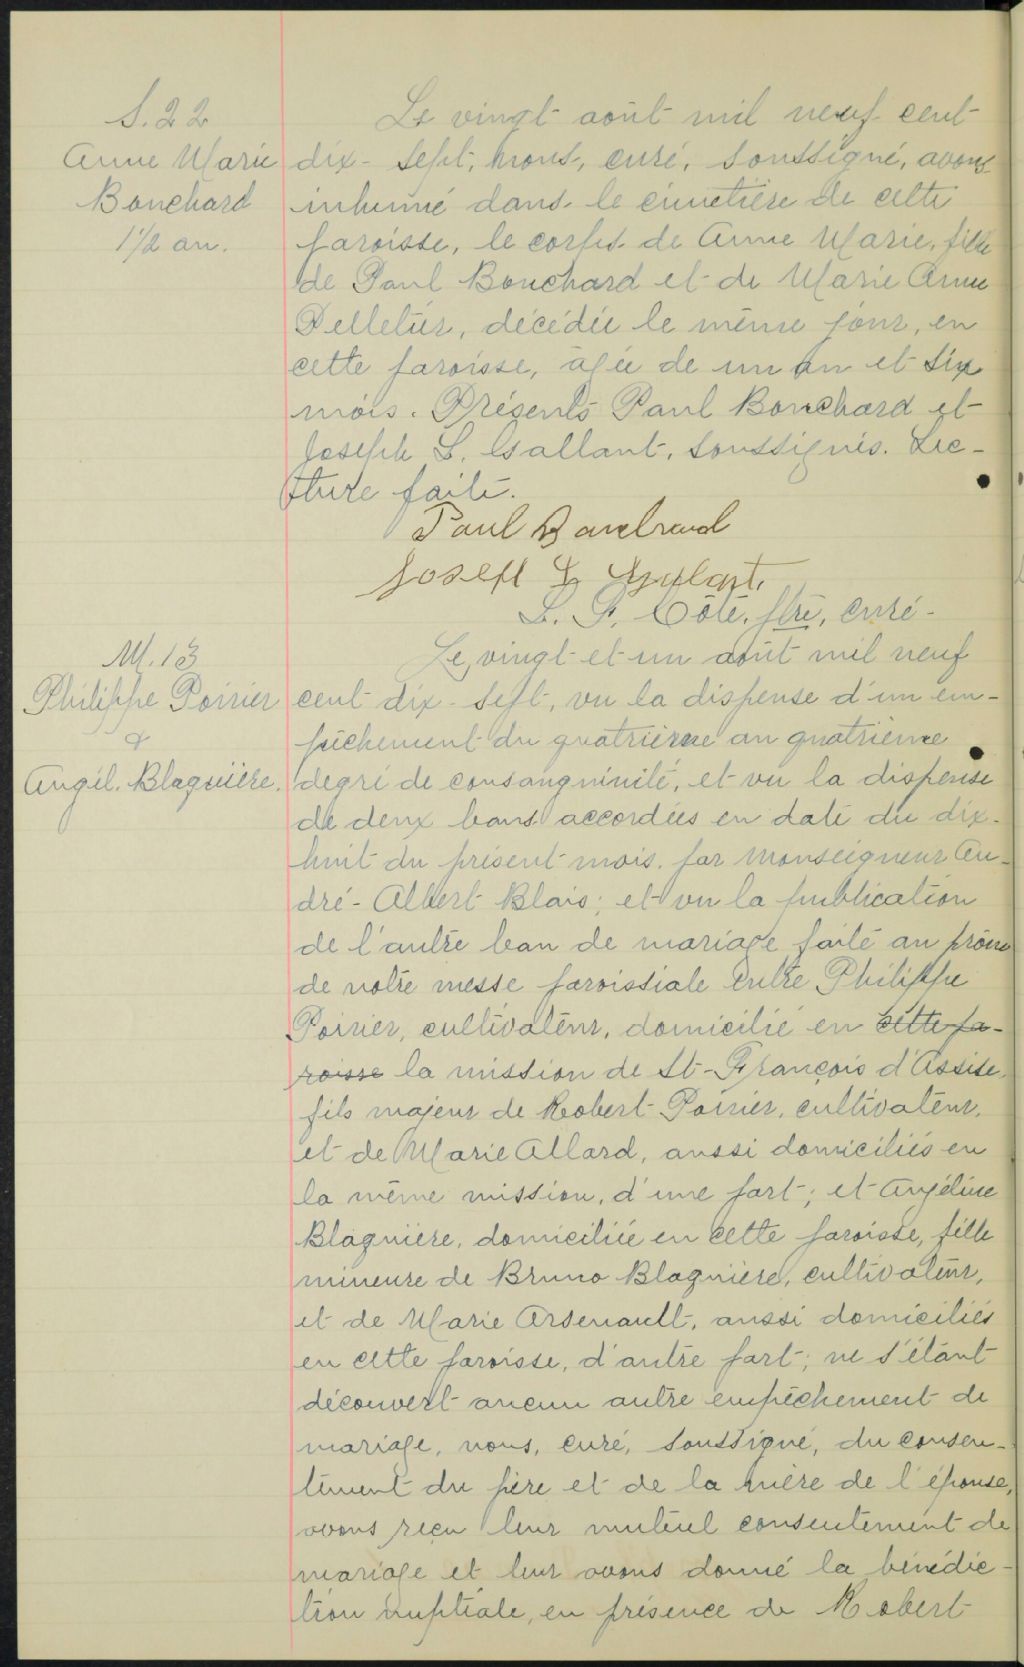 S. 22
Anne Marie
Bouchard
1 1/2 an.
Le vingt août mil neuf cent
dix-sept, nous, curé, soussigné, avons
inhumé dans le cimetière de cette
paroisse, le corps de Anne Marie, fille
de Paul Bouchard et de Marie Anne
Pelletier, décédée le même jour, en
cette paroisse, âgée de un an et six
mois. Présents Paul Bouchard et
Joseph L. Gallant, soussignés. Lec-
ture faite.
Paul
Joseph L
L. P. Côté, ptre, curé-
M. 13
Philippe Poirier
&
Angél. Blaquière.
Le vingt et un août mil neuf
cent dix-sept, vu la dispense d'un em-
pêchement du quatrième au quatrième
degré de consanguinité, et vu la dispense
de deux bans accordées en date du dix-
huit du présent mois, par Monseigneur An-
dré-Albert Blais; et vu la publication
de l'autre ban de mariage faite au prône
de notre messe paroissiale entre Philippe
Poirier, cultivateur, domicilié en cette pa-
roisse la mission de St-François d'Assise,
fils majeur de Robert Poirier, cultivateur,
et de Marie Allard, aussi domiciliés en
la même mission, d'une part; et Angéline
Blaquière, domiciliée en cette paroisse, fille
mineure de Bruno Blaquière, cultivateur,
et de Marie Arsenault, aussi domiciliés
en cette paroisse, d'autre part; ne s'étant
découvert aucun autre empêchement de
mariage, nous, curé, soussigné, du consen-
tement du père et de la mère de l'épouse,
avons reçu leur mutuel consentement de
mariage et leur avons donné la bénédic-
tion nuptiale, en présence de Robert